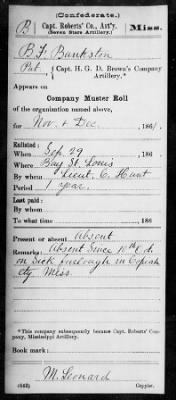 (Confederate.)
B | Capt. Roberts' Co., Art'y. | Miss.
(Seven Stars Artillery.)
B. F. Bankston
Pvt., { Capt. H. G. D. Brown's Company Artillery.*
Appears on
Company Muster Roll
of the organization named above,
for Nov. & Dec., 1861.
Enlisted:
When Sep. 29, 186
Where Bay St. Louis
By whom Lieut. C. Hunt
Period 1 year
Last paid:
By whom
To what time, 186
Present or absent Absent
Remarks: Absent Since 10th d.
on Sick furlough in Copiah
cty Miss.
*This company subsequently became Capt. Roberts' Company, Mississippi Artillery.
Book mark:
M. Leonard
(642) Copyist.